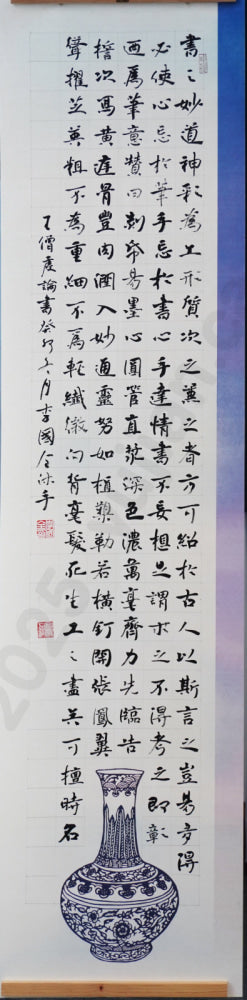 書〻妙道神彩為上形質次之兼之者方可紹於古人以斯言之豈易多得
必使心忘於筆手忘於書心手達情書不妄想是謂求之不得考之即彰
迺為筆意贊曰剡紙易墨心圓管直漿深色濃萬毫齊力先臨告
誓次寫黃庭骨豐肉潤入妙通靈努如植槊勒若橫釘開張鳳翼
聳擢芝英粗不為重細不為輕纖微向背毫髮死生工〻盡矣可擅時名
王僧虔論書癸卯六月李國全沐手